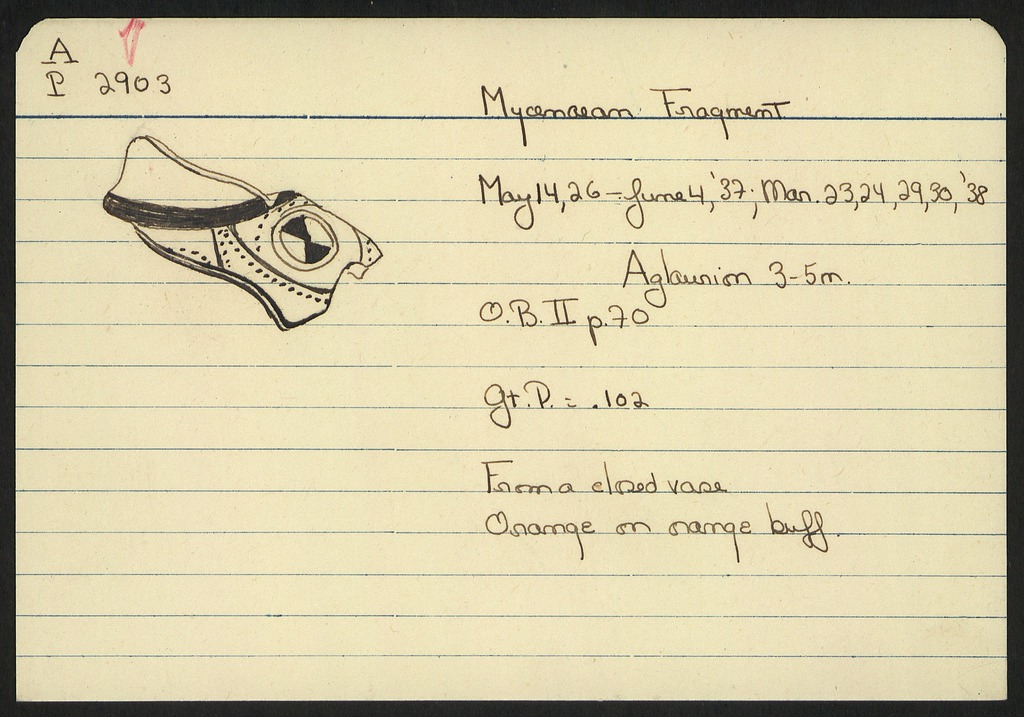 A
P 2903
Mycenaean Fragment
May 14, 26 - June 4, '37; Mar. 23, 24, 29, 30, '38
Aglaurion 3-5m.
O.B. II p.70
Gr.P. = .102
From a closed vase
Orange on orange buff.